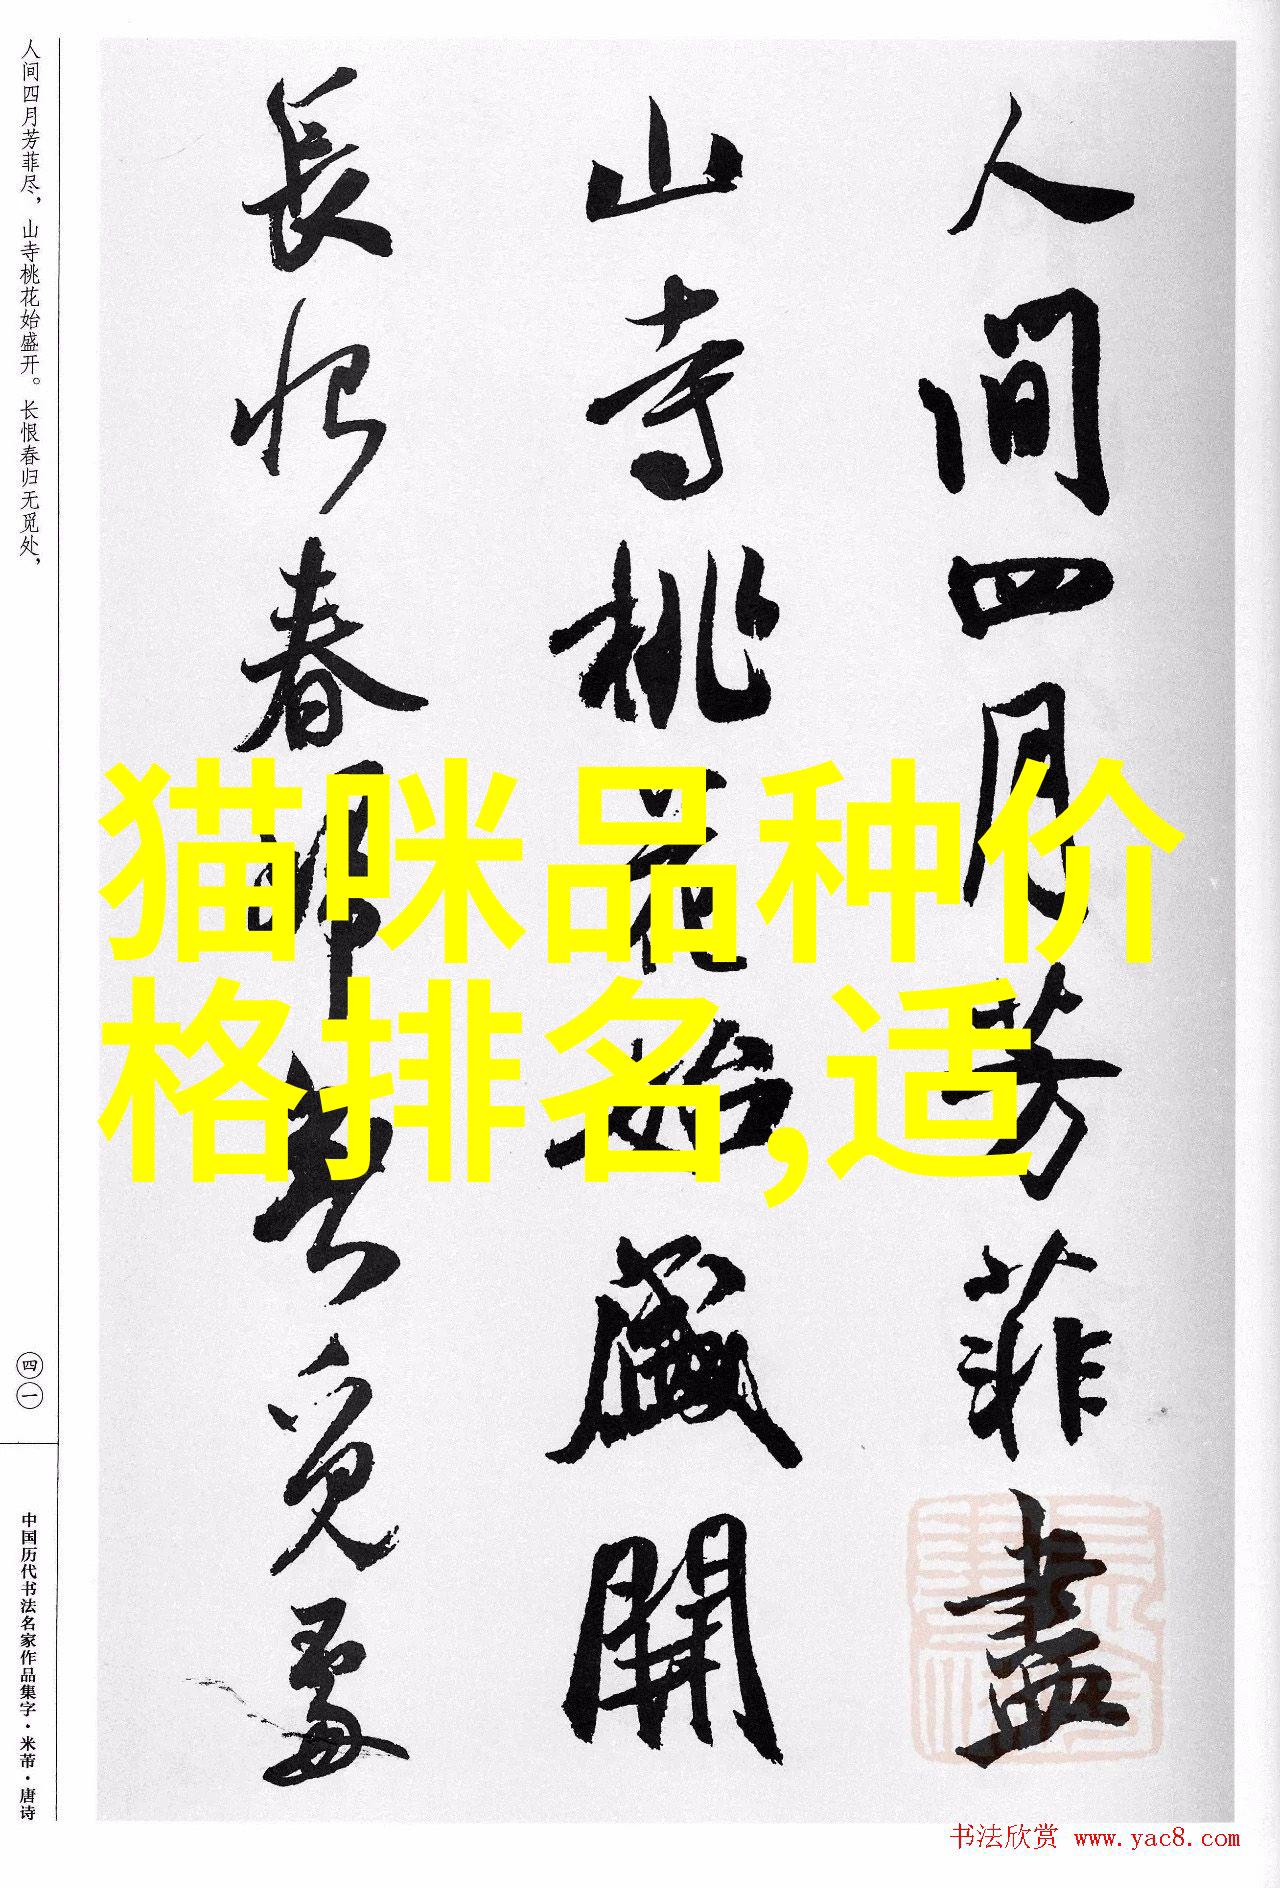 人間四月芳菲盡
山寺桃花始盛開
長恨春歸無覓處
人间四月芳菲尽，山寺桃花始盛开。长恨春归无觅处，
四一
中国历代书法名家作品集字·米芾·唐诗
猫咪品种价
格排名,适
书法欣赏 www.yac8.com